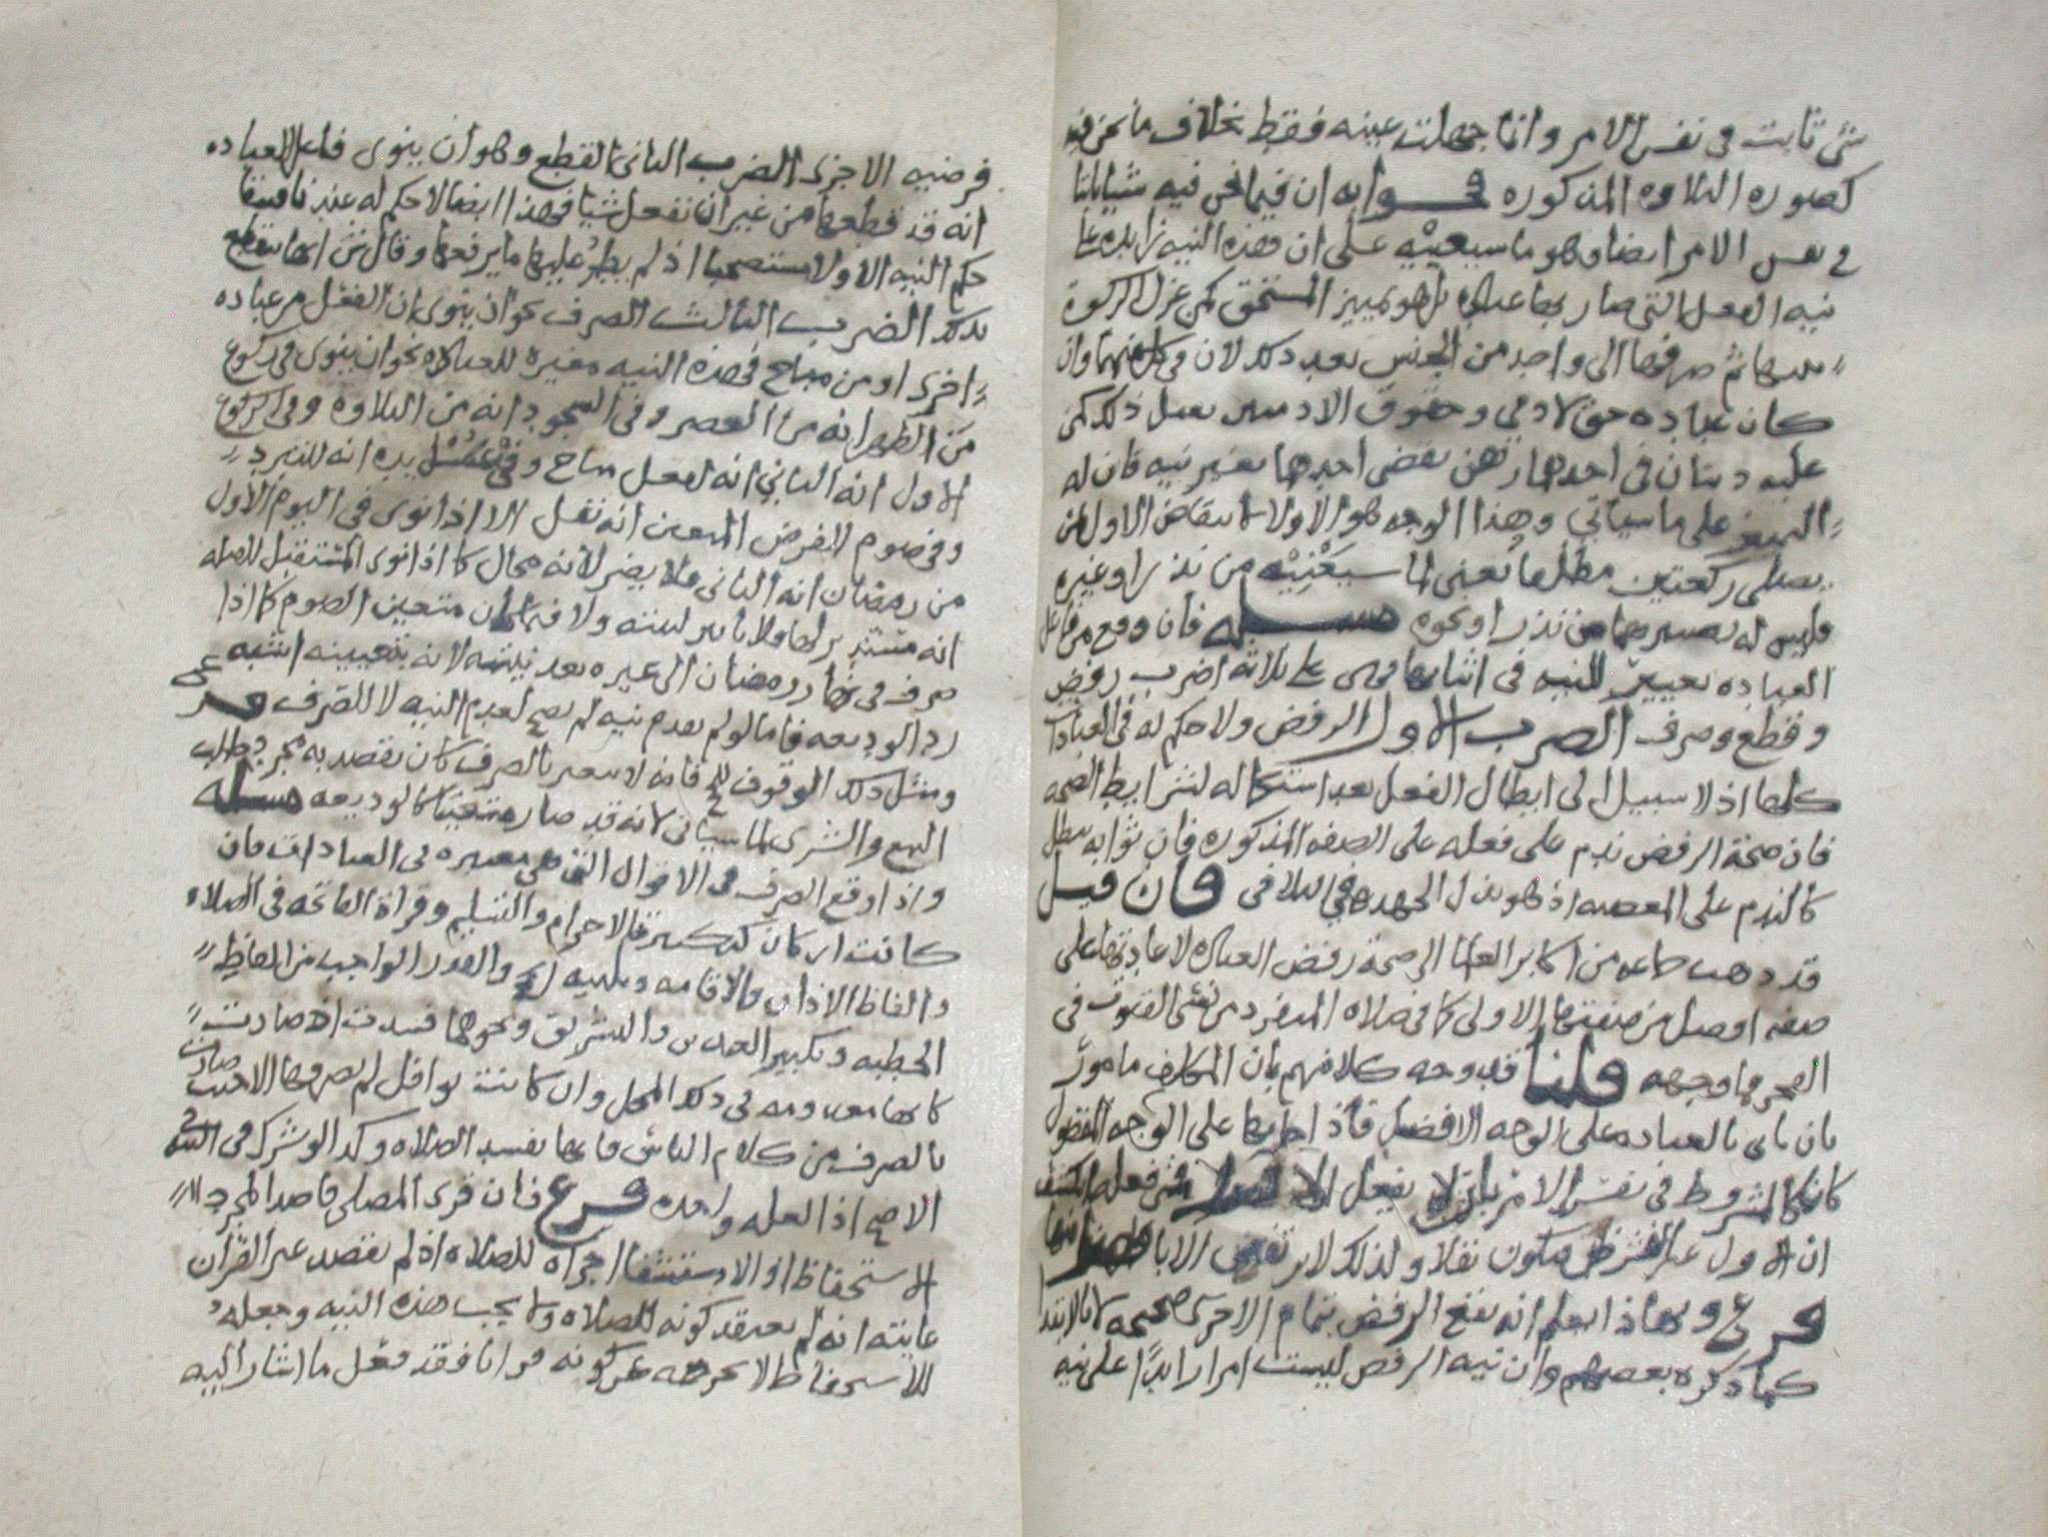 شي ثابت في نفس الامر وانما جهلت عينه فقط بخلاف ما نحن فيه
كصوره التلاوه المذكوره جوابه ان فيما نحن فيه شيا ثابتا
في نفس الامر ايضا وهو ما سيعينه على ان هذه النيه زايده على
نيه الفعل التي صار بها عباده بل هو تمييز المستحق كمن عزل الزكوة
ثم صرفها الى واحد من الجنس بعد ذلك لان وان
كان عباده حق لادمي وحقوق الادميين تقبل ذلك كمن
عليه دينان في احدهما رهن يقضي احدهما بغير نيه فان له
التعيين على ما سياتي وهذا الوجه هو الاولا لانتقاض الاول بمن
يصلي ركعتين مطلقا تعني لما سيعينه من نذر او غيره
وليس له تصييرهما من نذر او نحوه مسله فان وقع من فاعل
العباده تغيير للنيه في اثنائها فهي على ثلاثه اضرب رفض
وقطع وصرف الضرب الاول الرفض ولا حكم له في العبادات
كلها اذ لا سبيل الى ابطال الفعل بعد استكماله لشرايط الصحه
فان صحة الرفض ندم على فعله على الصفه المذكوره فان ثوابه يبطل
كالندم على المعصيه اذ هو بذل الجهد في التلافي فان قيل
قد ذهب جماعه من اكابر العلما الى صحة رفض العباده لاعادتها على
صفه افضل من صفتها الاولى كما في صلاه المنفرد من نسي القنوت في
الفجر فما وجهه قلنا قد وجه كلامهم بان المكلف مامور
بان ياتي بالعباده على الوجه الافضل فاذا اتا بها على الوجه المفضول
كان كالمشروط في نفس الامر بان لا يفعل متى فعله انكشف
ان الاول غير الفرض فيكون نفلا ولذلك لا يرتفض الا
فرع وبهذا يعلم انه يقع الرفض بتمام الاخرى صحيحه لا بالابتدا
كما ذكره بعضهم وان نيه الرفض ليست امرا زايدا على نيه
فرضيه الاخرى الضرب الثاني القطع وهو ان ينوي فاعل العباده
انه قد قطعها من غير ان يفعل شيا فهذا ايضا لا حكم له عندنا
حكم النيه الاولا مستصحبا اذ لم يطر عليها ما يرفعها وقال ش انها تنقطع
بذلك الضرب الثالث الصرف نحو ان ينوي ان الفعل من عباده
اخرى او من مباح فهذه النيه مغيره للعباده نحو ان ينوي في ركوع
من الظهر انه من العصر وفي السجود انه من التلاوه وفي الركوع
الاول انه الثاني انه لفعل مباح وفي غسل يده انه للتبرد
وفي صوم الفرض المعين انه نفل الا اذا نوى في اليوم الاول
من رمضان انه الثاني فلا يضر لانه محال كما اذا نوى المستقبل للقبله
انه مستدبر لها ولا تاثير لنيته ولا فيما كان متعين الصوم كما اذا
صرف في نهار رمضان الى غيره بعد نيته لانه بتعيينه اشبه
رد الوديعه فاما لو لم يقدم نيه لم يصح لعدم النيه لا للصرف فرع
ومثل ذلك الوقوف للحج فانه لا يتغير بالصرف كان يقصد به مجرد طلب
البيع والشرى لما سياتي لانه قد صار متعينا كالوديعه مسله
واذا وقع الصرف في الاقوال التي هي معتبره في العبادات فان
كانت اركان كتكبيرة الاحرام والتسليم وقراة الفاتحه في الصلاه
والفاظ الاذان والاقامه وتلبيه الحج والقدر الواجب من الفاظ
الخطبه وتكبير العيدين والتشريق ونحوها فسدت اذ صارت
كانها معدومه في ذلك المحل وان كانت نوافل لم يصرفها الا حيث صارت
بالصرف من كلام الناس فانها تفسد الصلاه وكذا لو شرك في النيه
الاصح اذ العله واحده فرع فان قرى المصلي قاصدا لمجرد
الاستحفاظ او الاستشفا اجزاه للصلاه اذ لم يقصد غير القران
غايته انه لم يعتقد كونه للصلاه ولا يجب هذه النيه وجعله
للاستحفاظ لا يخرجه عن كونه قرانا فقد فعل ما اشار اليه